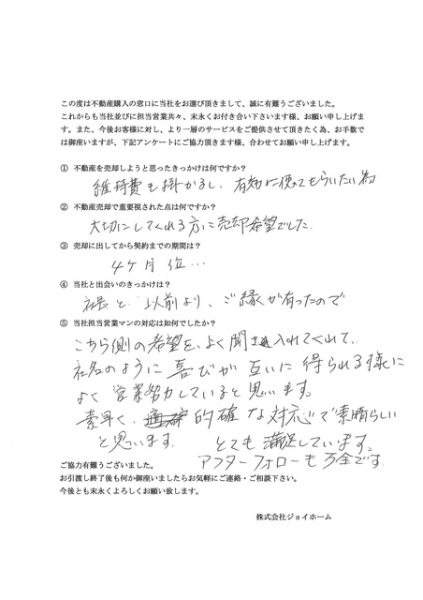 この度は不動産購入の窓口に当社をお選び頂きまして、誠に有難うございました。
これからも当社並びに担当営業共々、末永くお付き合い下さいます様、お願い申し上げま
す。また、今後お客様に対し、より一層のサービスをご提供させて頂きたく為、お手数で
は御座いますが、下記アンケートにご協力頂きます様、合わせてお願い申し上げます。
① 不動産を売却しようと思ったきっかけは何ですか？
維持費も掛かるし、有効に使ってもらいたい為
② 不動産売却で重要視された点は何ですか？
大切にしてくれる方に売却希望でした
③ 売却に出してから契約までの期間は？
4ヶ月位…
④ 当社と出会いのきっかけは？
社長と以前より、ご縁が有ったので
⑤ 当社担当営業マンの対応は如何でしたか？
こちら側の希望を、よく聞き入れてくれて、
社名のように喜びが互いに得られる様に
よく営業努力していると思います。
素早く、的確な対応で素晴らしい
と思います。 とても満足しています。
アフターフォローも万全です。
ご協力有難うございました。
お引渡し終了後も何か御座いましたらお気軽にご連絡・ご相談下さい。
今後とも末永くよろしくお願い致します。
株式会社ジョイホーム